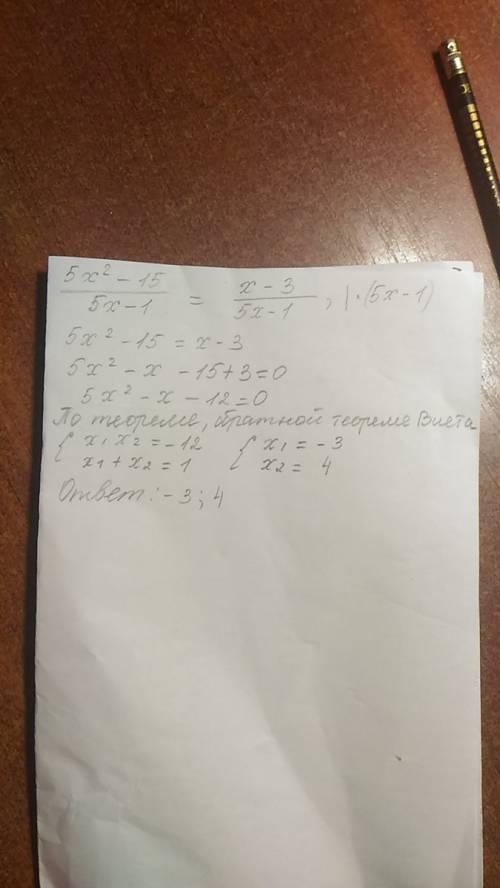 5x² - 15 / 5x - 1 = x - 3 / 5x - 1, | · (5x - 1)
5x² - 15 = x - 3
5x² - x - 15 + 3 = 0
5x² - x - 12 = 0
По теореме, обратной теореме Виета
{ x₁ x₂ = -12 { x₁ = -3
x₁ + x₂ = 1 x₂ = 4
Ответ: -3; 4